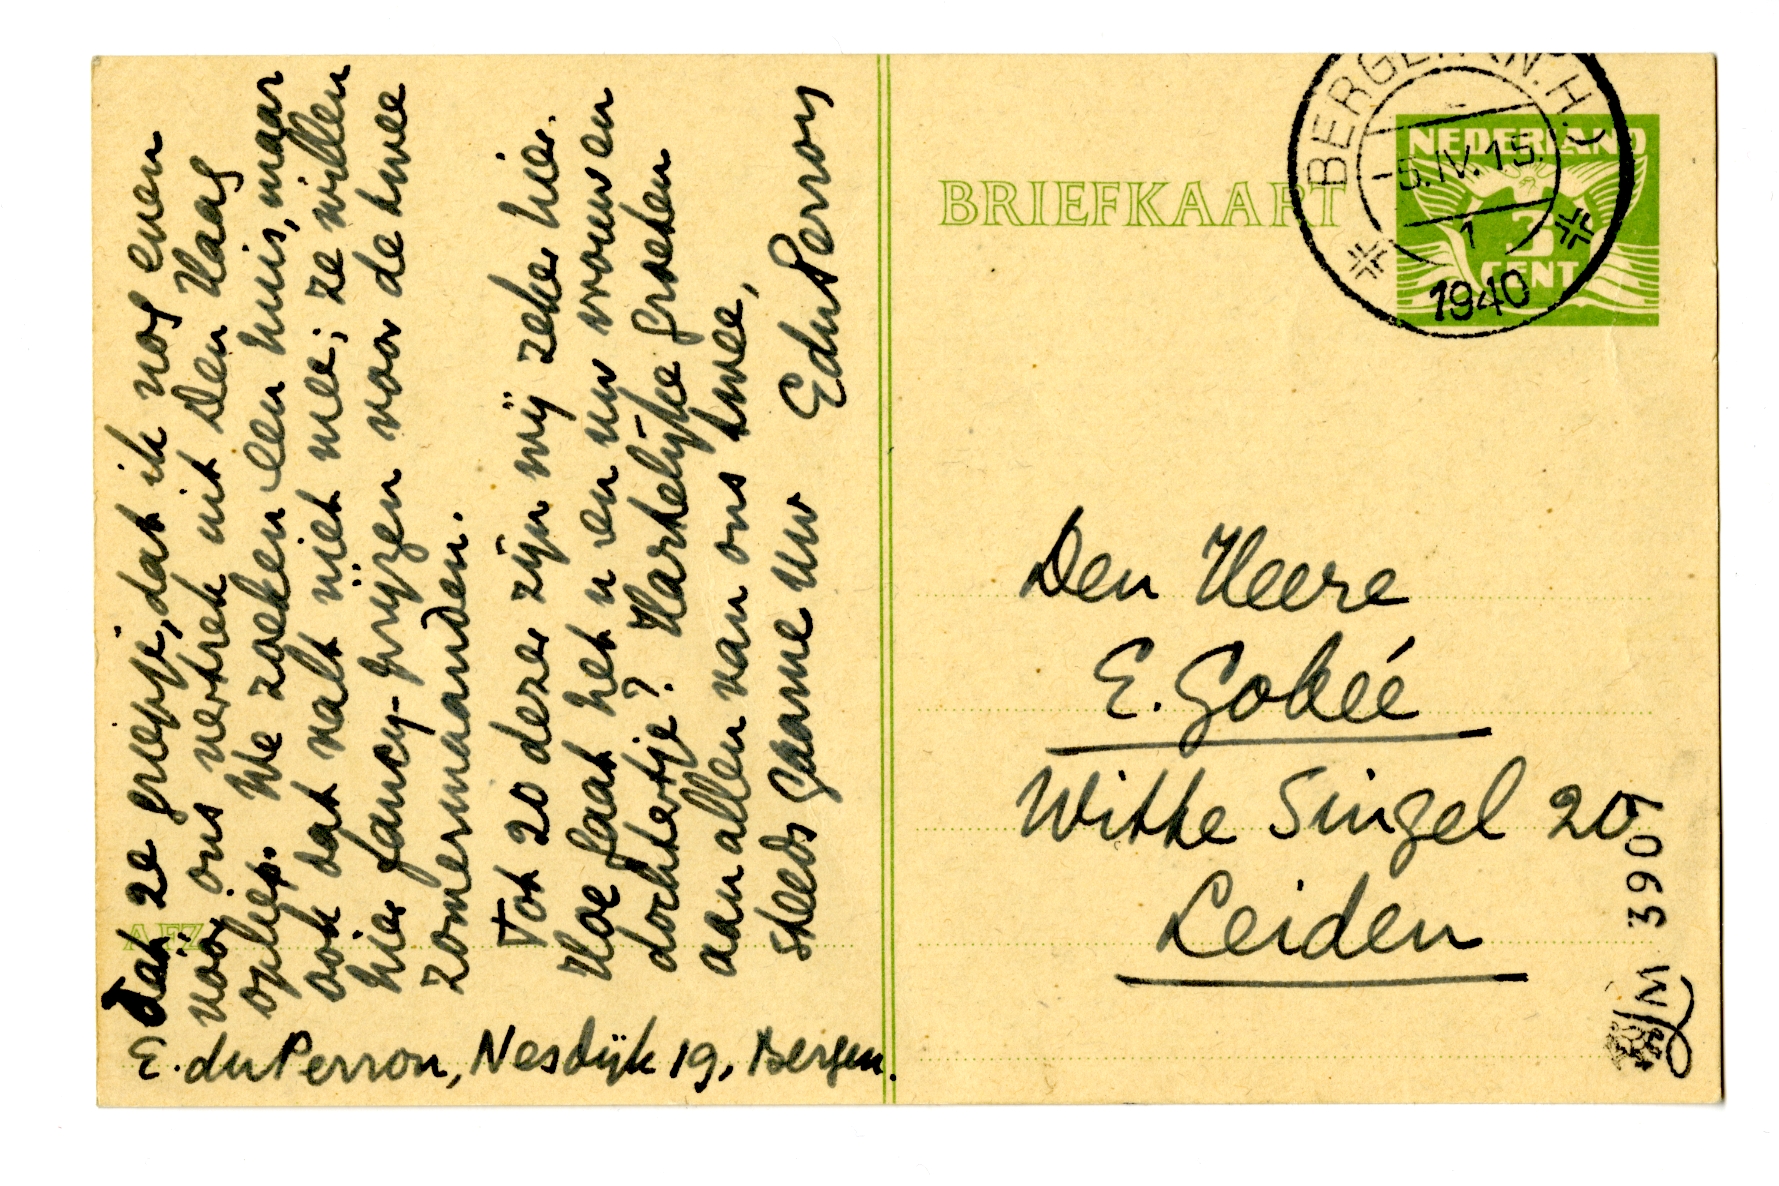 dat 2e griepje, dat ik nog even
voor ons vertrek uit Den Haag
opliep. We zoeken een huis, maar
ook dat valt niet mee; ze willen
hier fancy-prijzen voor de twee
zomermaanden.
Tot 20 dezer zijn wij zeker hier.
Hoe gaat het u en uw vrouw en
dochtertje? Hartelijke groeten
aan allen van ons twee,
steeds gaarne uw EduPerron
AFZ.
E. duPerron, Nesdijk 19, Bergen.
BRIEFKAART
NEDERLAND
3
CENT
BERGEN (N.H.)
-5.IV.15.
1
1940
Den Heere
E. Gobée
Witte Singel 20
Leiden
LM 3907